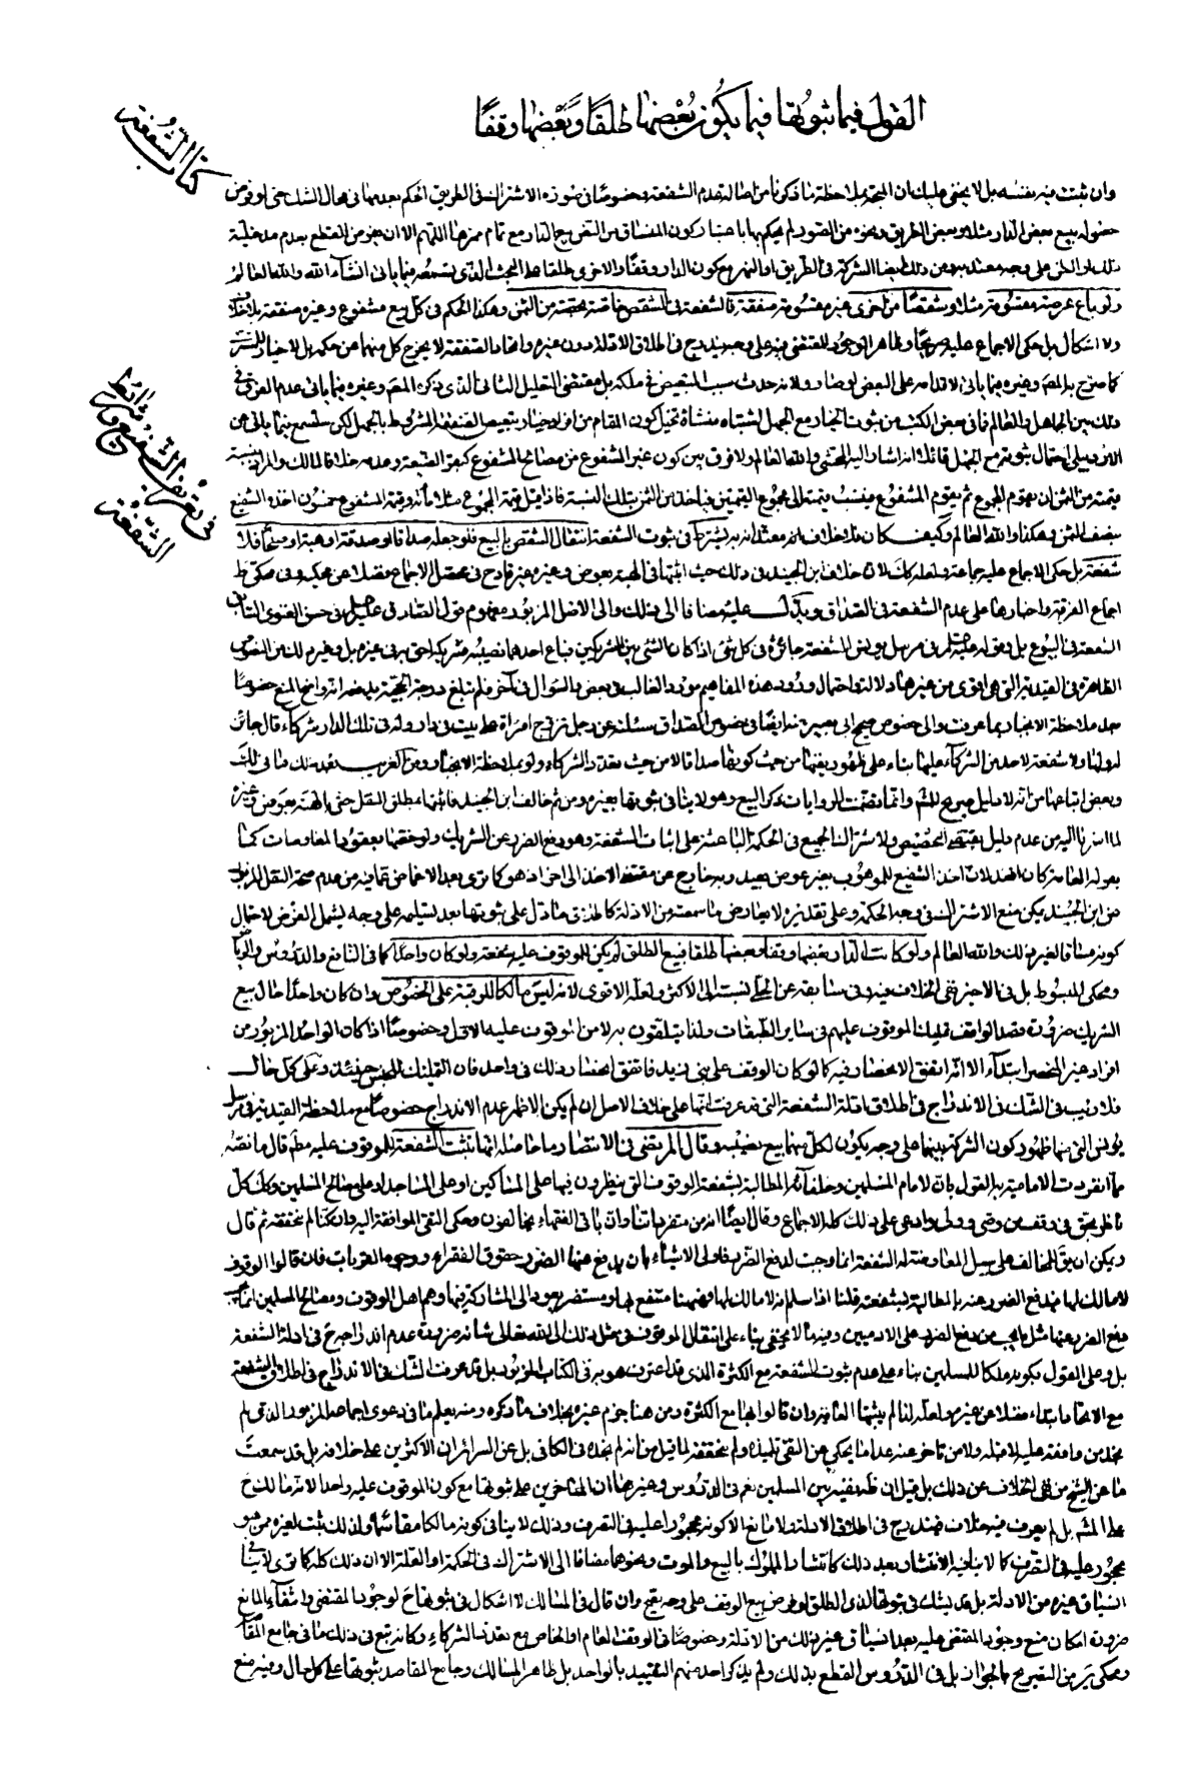 القول فيما ثبوتها فيما يكون بعضها طلقا وبعضها وقفا
كتاب الشفعة
وان ثبتت فيه بنفسه بل لا يخفى عليك ان المتجه بملاحظة ما ذكرنا من اصالة عدم الشفعة وخصوصا في صورة الاشتراك في الطريق الحكم بعدمها في حال الشك حتى لو فرض
حصوله ببيع بعض الدار مثلا وبعض الطريق ونحوه من الصور لم يحكم بها باعتبار كون المنساق من النصوص بيع الدار مع تمام ممرها اللهم الا ان يحصل القطع بعدم مدخلية
ذلك او الظن على وجه معتد به ومن ذلك ايضا الشركة في الطريق او النهر مع كون الدار وقفا والاخرى طلقا على البحث الذي تسمعه فيما ياتي انشاء الله والله العالم
ولو باع عرصة مقسومة مثلا وشقصا من اخرى غير مقسومة صفقة فالشفعة في الشقص خاصة بحصته من الثمن وهكذا الحكم في كل بيع مشفوع وغيره صفقة بلا خلاف
ولا اشكال بل حكى الاجماع عليه صريحا وظاهرا لوجود المقتضي فيه على وجه يندرج في اطلاق الادلة دون غيره واتحاد الصفقة لا يخرج كل منهما عن حكمه بل لا خيار للمشتري
كما صرح به المصنف وغيره فيما ياتي لاقدامه على التبعيض ولانه حدث سبب التبعيض في ملكه بل مقتضى التعليل الثاني الذي ذكره المصنف وغيره فيما ياتي عدم الفرق في
ذلك بين الجاهل والعالم فما في بعض الكتب من ثبوت الخيار مع الجهل اشتباه منشأه تخيل كون المقام من افراد خيار تبعيض الصفقة المشروط بالجهل لكن ستسمع فيما ياتي عن
الاردبيلي احتمال ثبوته مع الجهل قائلا انه اشار اليه المحشي والله العالم ولا فرق بين كون غير المشفوع من مصالح المشفوع كبقر الضيعة وعدمه خلافا لمالك والمراد بنسبة
قيمته من الثمن ان يقوم المجموع ثم يقوم المشفوع فينسب قيمته الى مجموع القيمتين فياخذ من الثمن بتلك النسبة فاذا قيل قيمة المجموع مثلا مأة وقيمة المشفوع خمسون اخذه الشفيع
بنصف الثمن وهكذا والله العالم وكيف كان فلا خلاف معتد به في انه يشترط في ثبوت الشفعة انتقال الشقص بالبيع فلو جعله صداقا او صدقة او هبة او صلحا فلا
شفعة بل حكى الاجماع عليه جماعة ولعله كذلك لان خلاف ابن الجنيد في ذلك حيث اثبتها في الهبة بعوض وغيره غير قادح في محصل الاجماع فضلا عن محكيه وفي محكي ط
اجماع الفرقة واخبارها على عدم الشفعة في الصداق ويدل عليه مضافا الى ذلك والى الاصل المزبور مفهوم قول الصادق عليه السلام في حسن الغنوي السابق
الشفعة في البيوع بل وقوله عليه السلام في مرسل يونس الشفعة جائزة في كل شيء اذا كان الشيء بين الشريكين فباع احدهما نصيبه فشريكه احق به من غيره بل وغير ذلك من النصوص
الظاهرة في القيدية التي هي اقوى من غيرها دلالة واحتمال ورود هذه المفاهيم مورد الغالب في بعض والسؤال في آخر فلم تبلغ درجة الحجية يدفعه انه واضح المنع خصوصا
بعد ملاحظة الانجبار بما عرفت والى خصوص صحيح ابي بصير ايضا في خصوص الصداق سئلته عن رجل تزوج امراة على بيت في دار وله في تلك الدار شركاء قال جائز
له ولها ولا شفعة لاحد من الشركاء عليها بناء على ظهور نفيها من حيث كونها صداقا لا من حيث تعدد الشركاء ولو بملاحظة الانجبار ومن الغريب بعد ذلك ما في لك
وبعض اتباعه من انه لا دليل صريح للمشهور وانما تضمنت الروايات ذكر البيع وهو لا ينافي ثبوتها بغيره ومن ثم خالف ابن الجنيد فاثبتها بمطلق النقل حتى بالهبة بعوض وغيره
لما اشرنا اليه من عدم دليل يقتضي التخصيص ولاشتراك الجميع في الحكمة الباعثة على اثبات الشفعة وهو دفع الضرر عن الشريك ولو خصها بعقود المعاوضات كما
يقوله العامة كان اعدل لان اخذ الشفيع للموهوب بغير عوض بعيد وبه خارج عن مقتضى الاخذ الى اخره اذ هو كما ترى بعد الاغماض عما فيه من عدم صحة النقل المزبور
عن ابن الجنيد يمكن منع الاشتراك في وجه الحكمة وعلى تقديره لا يعارض ما سمعته من الادلة كاطلاق ما دل على ثبوتها بعد تسليمه على وجه يشمل الفرض لاحتمال
كونه مساقا لغير ذلك والله العالم ولو كانت الدار بعضها وقفا وبعضها طلقا فبيع الطلق لم يكن للموقوف عليه شفعة ولو كان واحدا كما في النافع والدروس
ومحكي المبسوط بل في الاخير نفي الخلاف فيه وفي سابقه عن الحلي نسبته الى الاكثر ولعله الاقوى لانه ليس مالكا للرقبة على الخصوص وان كان واحدا حال بيع
الشريك ضرورة قصد الواقف تمليك الموقوف عليهم في ساير الطبقات ولذا يتلقون به لا من الموقوف عليه الاول وخصوصا اذا كان الواحد المزبور من
افراد غير المنحصر ابتداء الا انه اتفق الانحصار فيه كما لو كان الوقف على بني زيد فاتفق انحصار ذلك في واحد فان التمليك للجنس حينئذ وعلى كل حال
فلا ريب في الشك في الاندراج في اطلاق ادلة الشفعة التي قد عرفت انها على خلاف الاصل ان لم يكن الاظهر عدم الاندراج خصوصا مع ملاحظة القيدية في مرسل
يونس التي منها ظهور كون الشركة بينهما على وجه يكون لكل منهما بيع نصيبه وقال المرتضى في الانتصار وما حاصله انها تثبت الشفعة للموقوف عليه مطلقا قال ما نصه
مما انفردت الامامية به القول بان لامام المسلمين وخلفائه المطالبة بشفعة الوقوف التي ينظرون فيها على المساكين او على المساجد او على مصالح المسلمين وكذلك كل
ناظر بحق في وقف من وصي وولي وادعى على ذلك كله الاجماع وقال ايضا انه من متفرداتنا وان باقي الفقهاء يخالفون وحكى التقي الموافقة اليه وان كنا لم نتحققه ثم قال
ويمكن ان يقال للمخالف على سبيل المعارضة له الشفعة انما وجبت لدفع الضرر فاولى الاشياء بان يدفع عنها الضرر حقوق الفقراء ووجوه القربات فان قالوا الوقوف
لا مالك لها فيدفع الضرر عنه بالمطالبة بشفعته قلنا اذا سلم انه لا مالك لها فهيهنا منتفع بها ومستضر يعود الى المشاركة فيها وهم اهل الوقوف ومصالح المسلمين انما يجب
دفع الضرر عنها مثل ما يجب من دفع الضرر على الادميين وفيه ما لا يخفى بناء على انتقال الموقوف في مثل ذلك الى الله تعالى شانه ضرورة عدم اندراجه ح في ادلة الشفعة
بل وعلى القول بكونه ملكا للمسلمين بناء على عدم ثبوت الشفعة مع الكثرة الذي قد اعترف هو به في الكتاب المزبور بل قد عرفت الشك في الاندراج في اطلاق الشفعة
مع الاتحاد ابتداء فضلا عن غيره ولعله لذا لم يثبتها العامة وان قالوا بها مع الكثرة ومن هنا جزم غيره بخلاف ما ذكره ومنه يعلم ما في دعوى اجماعه المزبور الذي لم
نجد من وافقه عليه لا قبله ولا من تاخر عنه عدا ما يحكى عن التقي تلميذه ولم نتحققه لما قيل من انه لم نجده في الكافي بل عن السرائر ان الاكثرين على خلافه بل قد سمعت
ما عن الشيخ من نفي الخلاف عن ذلك بل قيل ان ظاهره نفيه بين المسلمين نعم في الدروس وغيرها ان المتاخرين على ثبوتها مع كون الموقوف عليه واحدا لانه مالك ح
على المشهور بل لم يعرف فيه خلاف فيندرج في اطلاق الادلة ولا مانع الا كونه محجورا عليه في التصرف وذلك لا ينافي كونه مالكا مقاسما ولذلك ثبت لغيره ممن هو
محجور عليه في التصرف كما لا ينافيه الانتشار بعد ذلك كانتشار المملوك بالبيع والموت ونحوهما مضافا الى الاشتراك في الحكمة او العلة الا ان ذلك كله كما ترى لا ينافي
انسياق غيره من الادلة بل قد يشك في ثبوتها لذي الطلق لو فرض بيع الوقف على وجه يصح وان قال في المسالك لا اشكال في ثبوتها ح لوجود المقتضي وانتفاء المانع
ضرورة امكان منع وجود المقتضي عليه بعد انسياق غير ذلك من الادلة وخصوصا في الوقف العام او الخاص مع تعدد الشركاء وكانه تبع في ذلك ما في جامع المقاصد
ومحكي ير من التصريح بالجواز بل في الدروس القطع بذلك ولم يذكر احد منهم التقييد بالواحد بل ظاهر المسالك وجامع المقاصد ثبوتها على كل حال وفيه منع
في تعريف الشفيع وشرائط
الشفعة